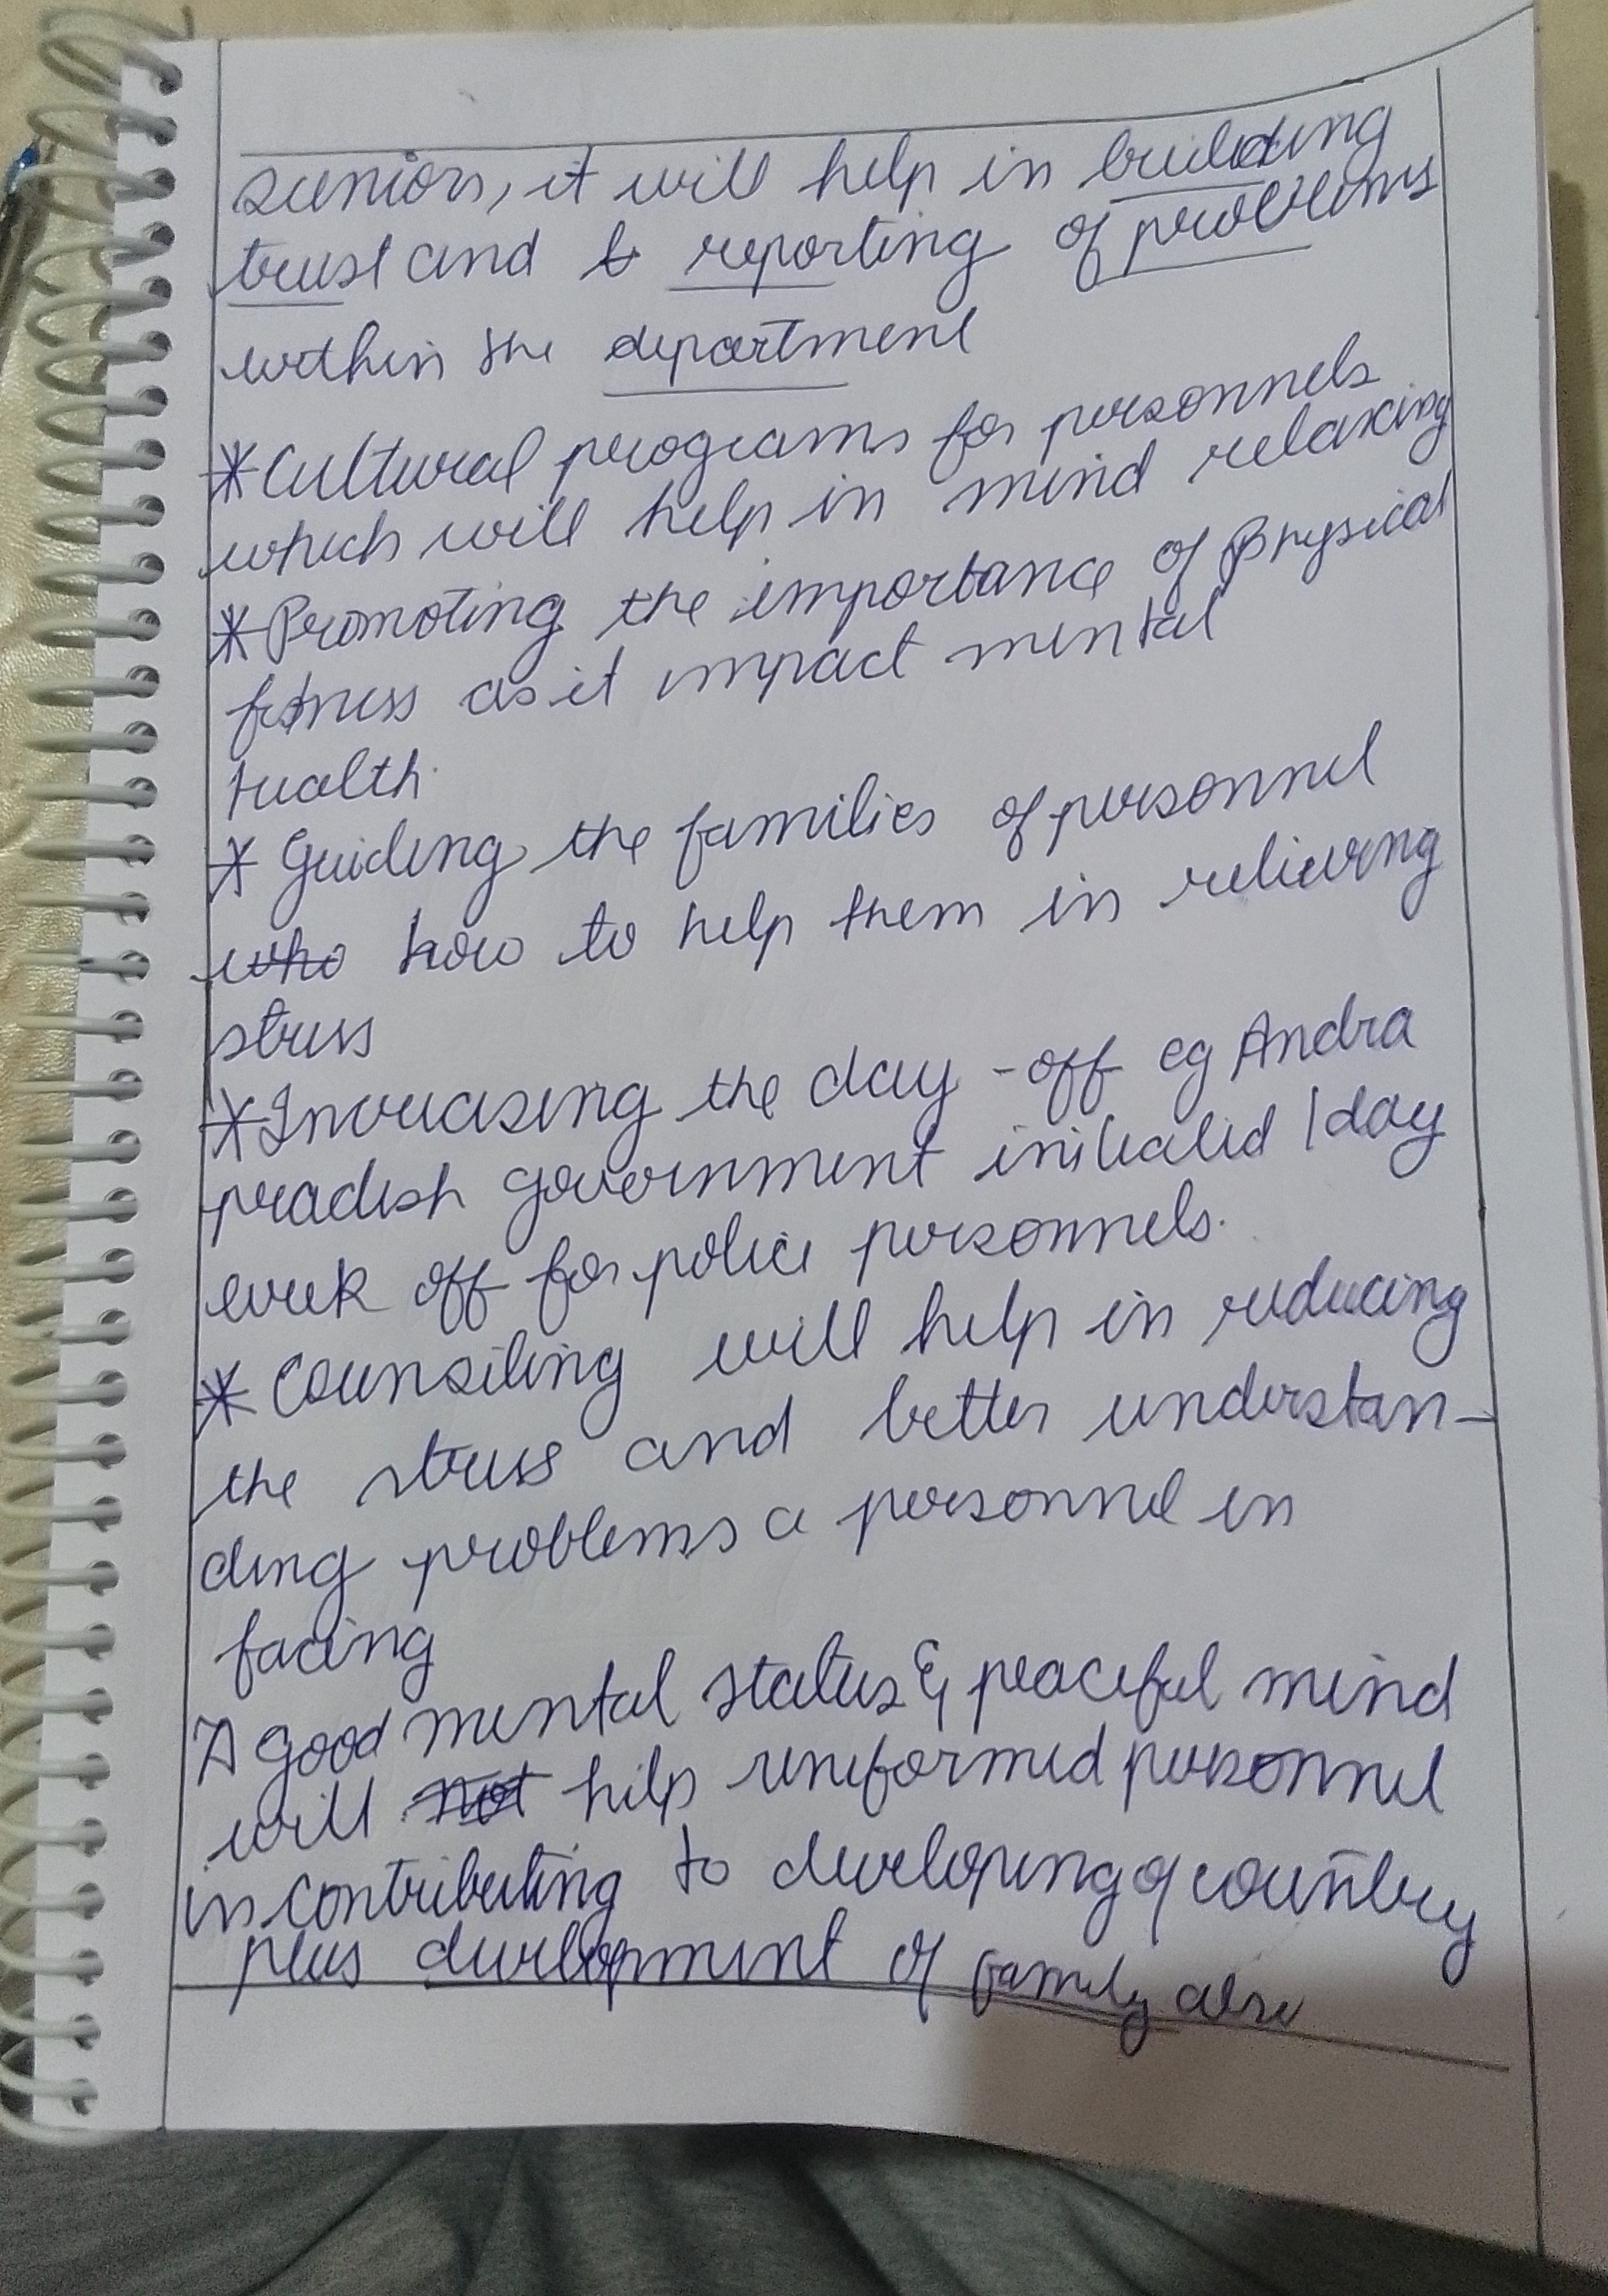 seniors, it will help in building
trust and reporting of problems
within the department
*Cultural programs for personnels
which will help in mind relaxing
*Promoting the importance of Physical
fitness as it impact mental
Health.
* Guiding the families of personnel
who how to help them in relieving
stress
*Increasing the day-off eg Andra
pradesh government initiated 1 day
week off for police personnels.
* Counsiling will help in reducing
the stress and better understan-
ding problems a personnel in
facing
A good mental status & peaceful mind
will not help uniformed personnel
in contributing to developing of country
plus development of family also